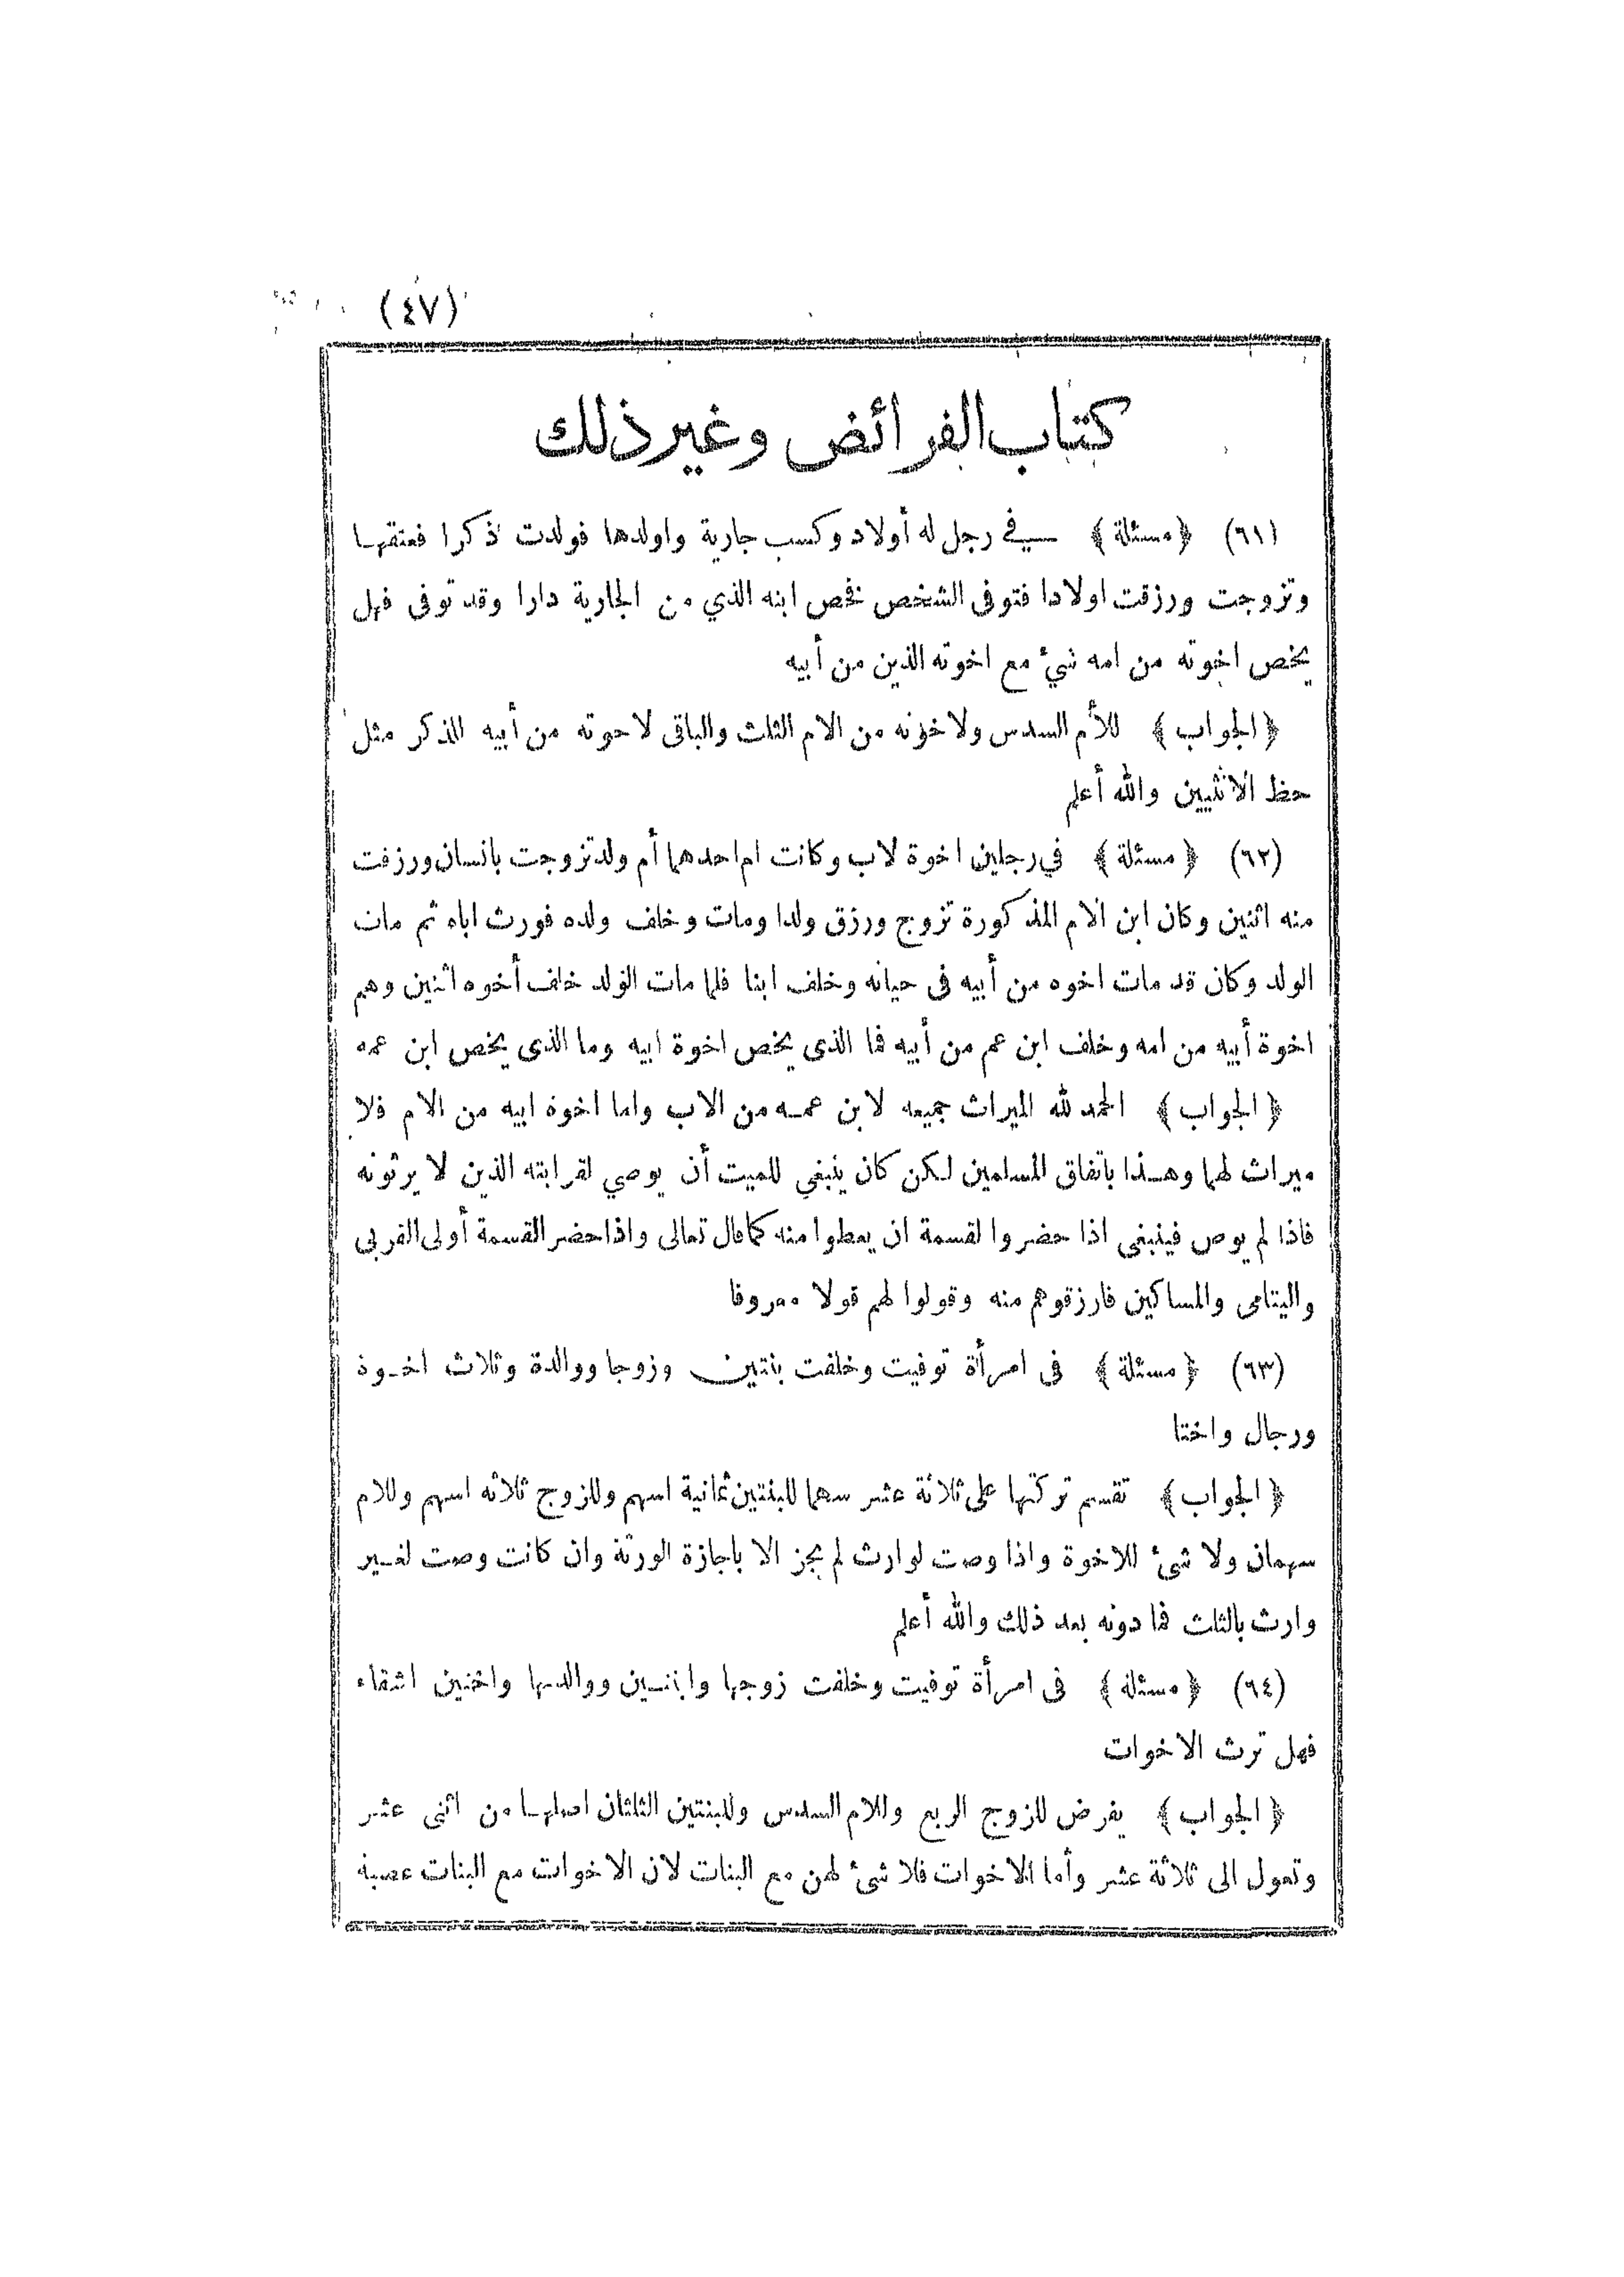 (٤٧)
كتاب الفرائض وغير ذلك
(٦١) ﴿مسئلة﴾ في رجل له أولاد وكسب جارية واولدها فولدت ذكرا فعتقها
وتزوجت ورزقت اولادا فتوفى الشخص فخص ابنه الذي من الجارية دارا وقد توفى فهل
يخص اخوته من امه شيء مع اخوته الذين من أبيه
﴿الجواب﴾ للأم السدس ولاخوته من الام الثلث والباقى لاخوته من أبيه للذكر مثل
حظ الانثيين والله أعلم
(٦٢) ﴿مسئلة﴾ في رجلين اخوة لاب وكانت ام احدهما أم ولد تزوجت بانسان ورزقت
منه اثنين وكان ابن الام المذكورة تزوج ورزق ولدا ومات وخلف ولده فورث اباه ثم مات
الولد وكان قد مات اخوه من أبيه فى حياته وخلف ابنا فلما مات الولد خلف أخوه اثنين وهم
اخوة أبيه من امه وخلف ابن عم من أبيه فما الذى يخص اخوة ابيه وما الذى يخص ابن عمه
﴿الجواب﴾ الحمد لله الميراث جميعه لابن عمه من الاب واما اخوة ابيه من الام فلا
ميراث لهما وهذا باتفاق المسلمين لكن كان ينبغي للميت أن يوصي لقرابته الذين لا يرثونه
فاذا لم يوص فينبغى اذا حضروا القسمة ان يعطوا منه كما قال تعالى واذا حضر القسمة أولى القربى
واليتامى والمساكين فارزقوهم منه وقولوا لهم قولا معروفا
(٦٣) ﴿مسئلة﴾ فى امرأة توفيت وخلفت بنتين وزوجا ووالدة وثلاث اخوة
ورجال واختا
﴿الجواب﴾ تقسم تركتها على ثلاثة عشر سهما للبنتين ثمانية اسهم وللزوج ثلاثه اسهم وللام
سهمان ولا شئ للاخوة واذا وصت لوارث لم يجز الا باجازة الورثة وان كانت وصت لغير
وارث بالثلث فما دونه بعد ذلك والله أعلم
(٦٤) ﴿مسئلة﴾ فى امرأة توفيت وخلفت زوجها وابنتين ووالدتها واختين اشقاء
فهل ترث الاخوات
﴿الجواب﴾ يفرض للزوج الربع وللام السدس وللبنتين الثلثان اصلها من اثنى عشر
وتعول الى ثلاثة عشر وأما الاخوات فلا شئ لهن مع البنات لان الاخوات مع البنات عصبة